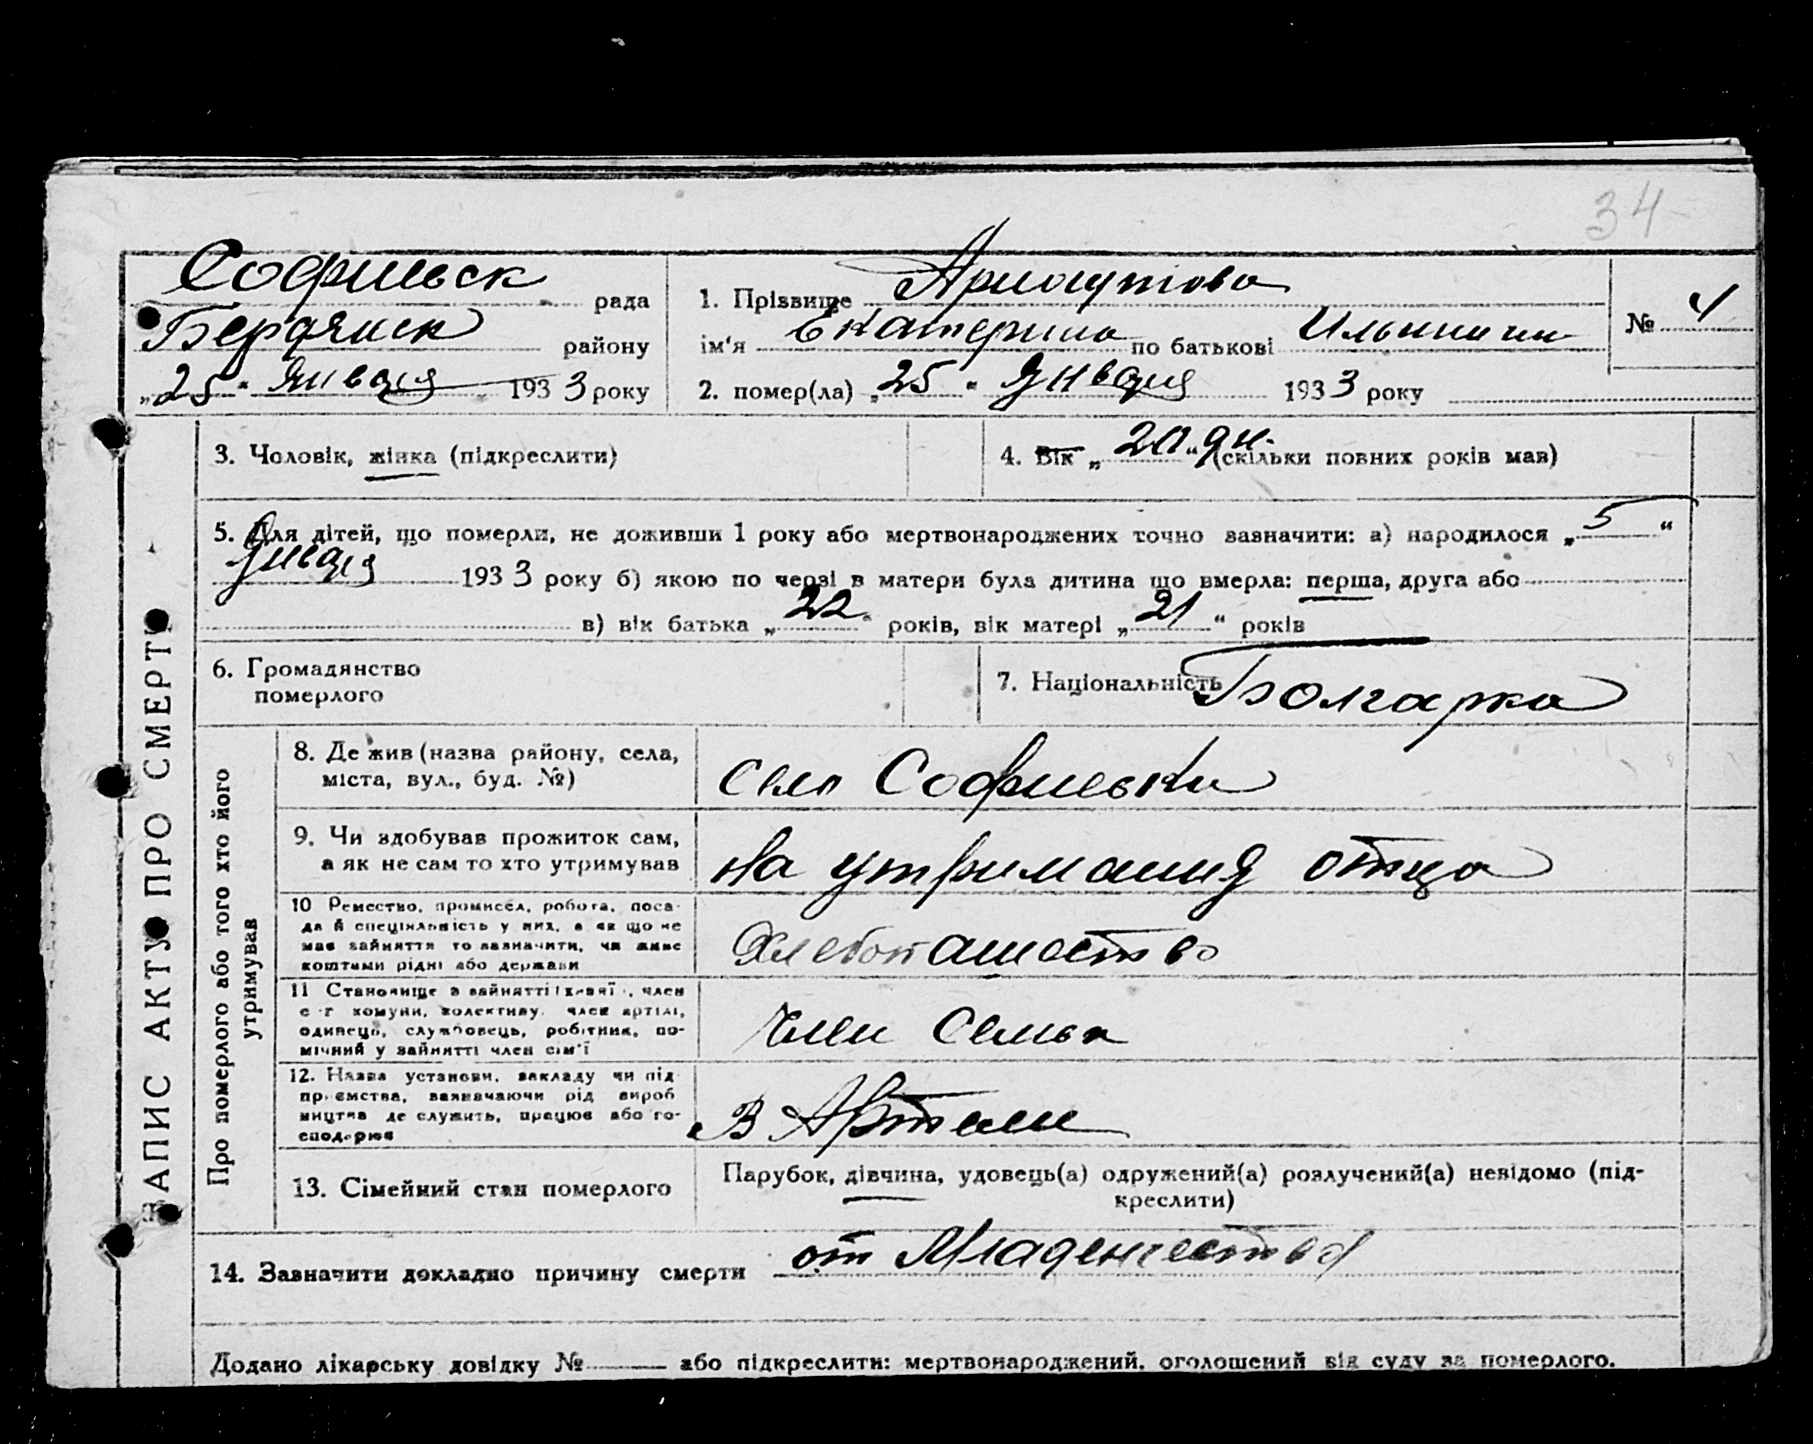 34
Софиевск рада
Бердянск району
„25“ Января 1933 року
1. Прізвище Арнаутова
ім'я Екатерина по батькові Ильинична
2. помер(ла) „25“ Января 1933 року
№ 4
3. Чоловік, жінка (підкреслити)
4. Вік „20“ дн. (скільки повних років мав)
5. Для дітей, що померли, не доживши 1 року або мертвонароджених точно зазначити: а) народилося „5“
Января 1933 року б) якою по черзі в матери була дитина що вмерла: перша, друга або
в) вік батька „22“ років, вік матері „21“ років
6. Громадянство
померлого
7. Національність Болгарка
ЗАПИС АКТУ ПРО СМЕРТЬ
Про померлого або того хто його
утримував
8. Де жив (назва району, села,
міста, вул., буд. №)
село Софиевка
9. Чи здобував прожиток сам,
а як не сам то хто утримував
на утримания отца
10 Ремество, промисел, робота, поса-
да й спеціяльність у них, а як що не
мав зайняття то зазначити, чи живе
коштами рідні або держави
Хлебопашество
11 Становище в зайнятті
с-г комуни, колективу, член артілі,
одинець, службовець, робітник, по-
мічний у зайнятті член сім'ї
член Семьи
12. Назва установи, закладу чи під-
приємства, зазначаючи рід вироб
ництва де служить, працює або го-
сподарює
В Артели
13. Сімейний стан померлого
Парубок, дівчина, удовець(а) одружений(а) розлучений(а) невідомо (під-
креслити)
14. Зазначити докладно причину смерти от Младенчества
Додано лікарську довідку № або підкреслити: мертвонароджений, оголошений від суду за померлого.